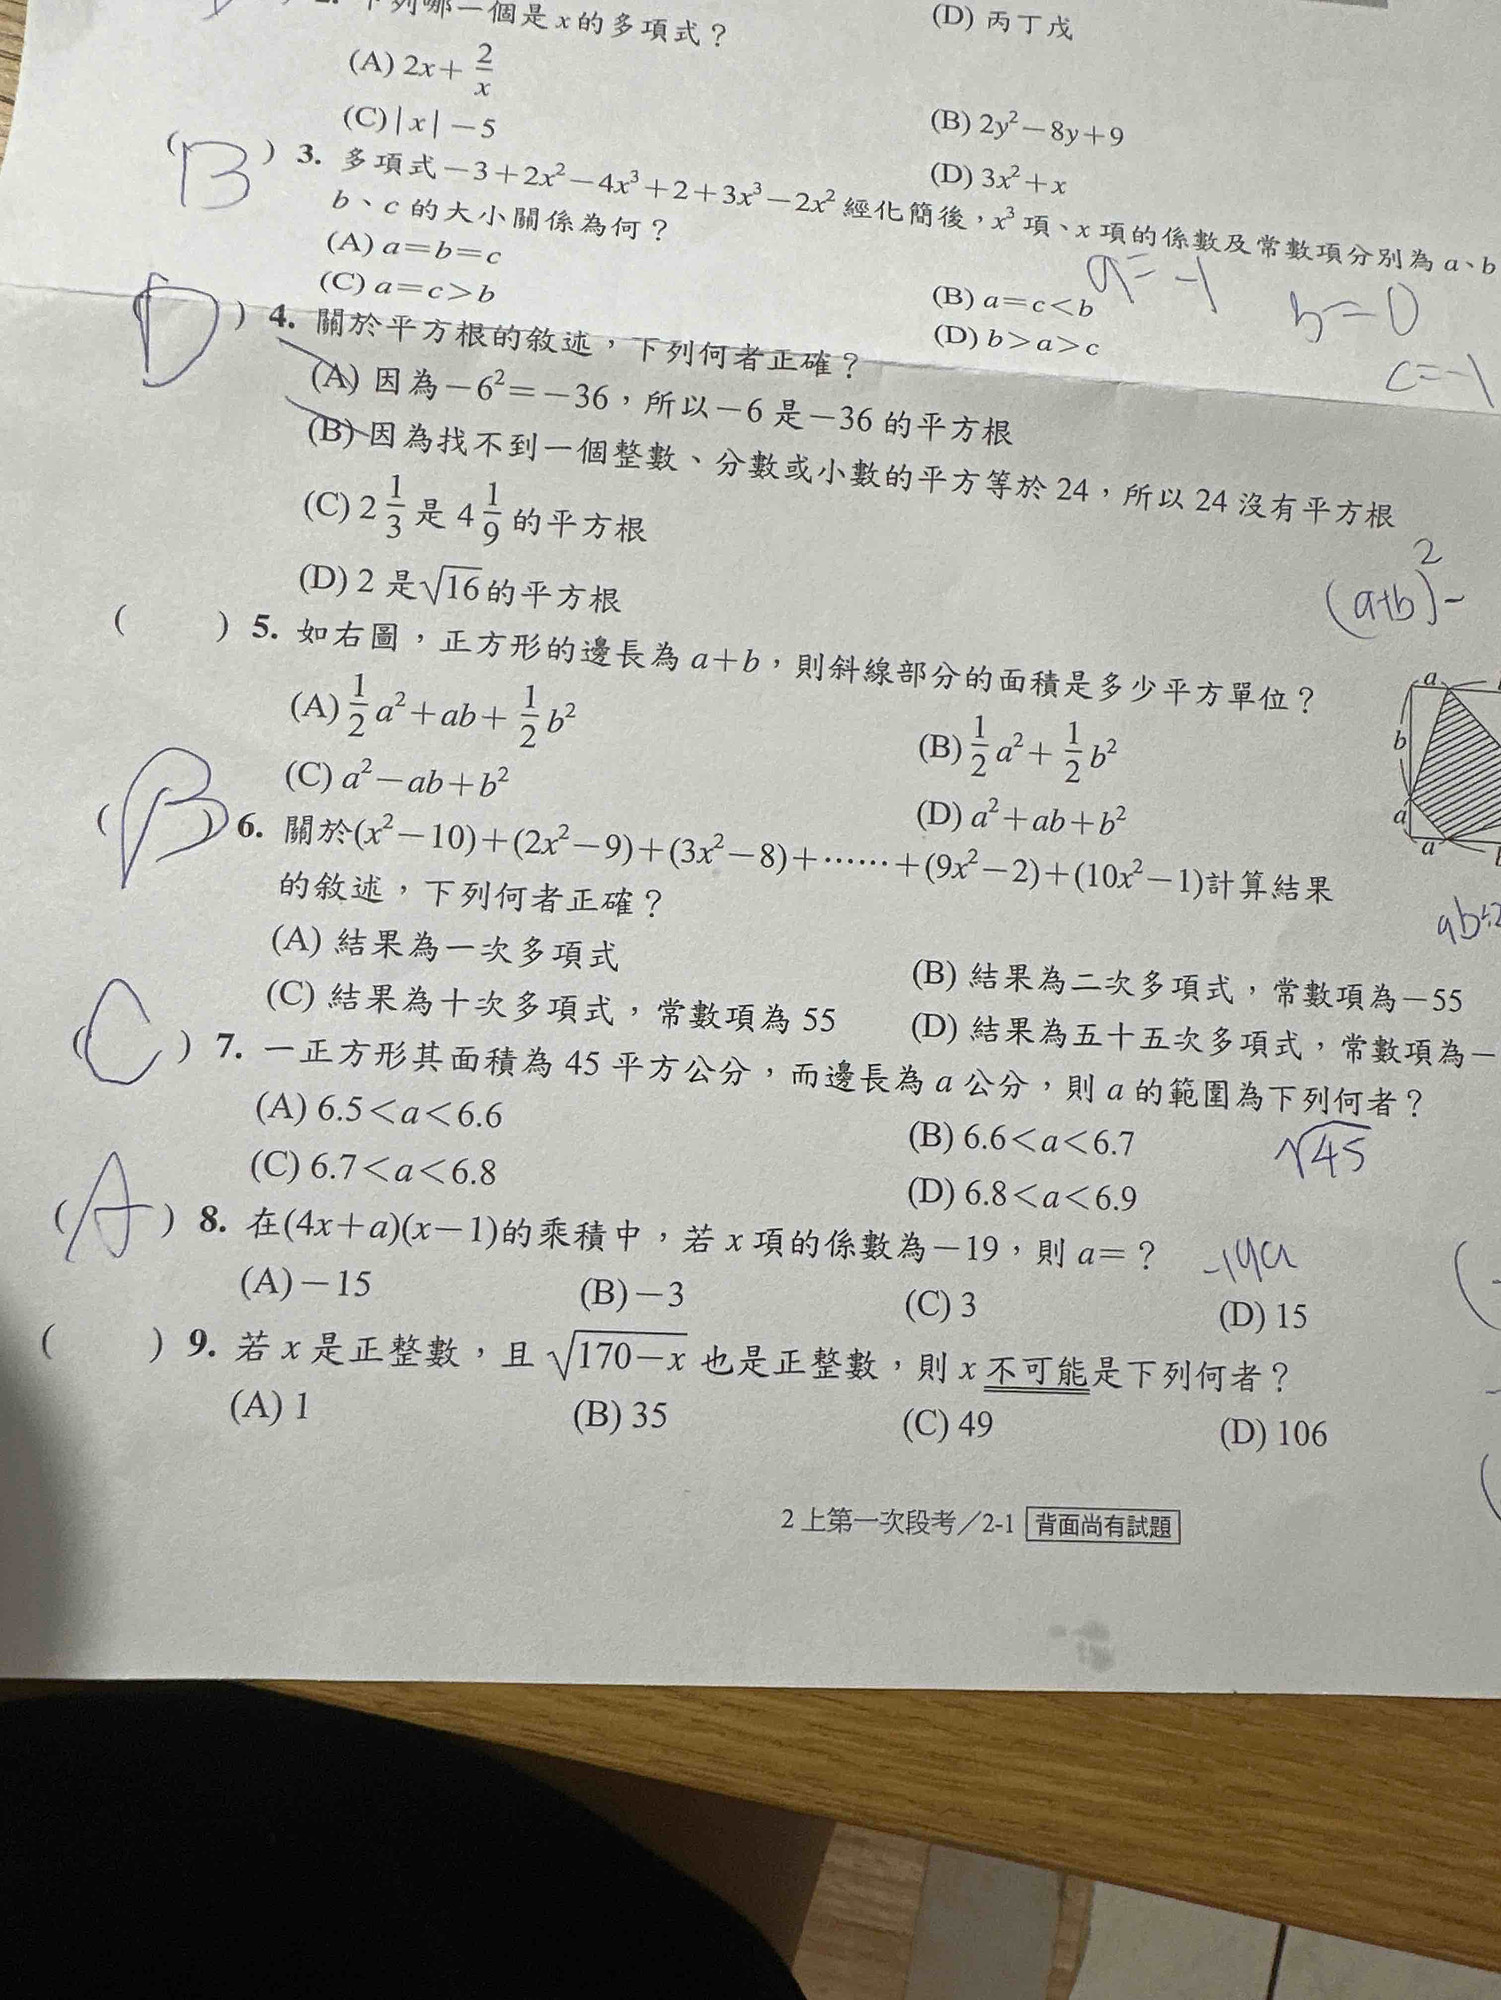 2. 下列哪一個是 x 的多項式？
(D) 丙丁戊
(A) 2x+2/x
(B) 2y²-8y+9
(C) |x|-5
(D) 3x²+x
(B) 3. 多項式-3+2x²-4x³+2+3x³-2x² 經化簡後，x³ 項、x 項的係數及常數項分別為 a、b
b、c 的大小關係為何？
a=-1 b=0
c=-1
(A) a=b=c
(B) a=c<b
(C) a=c>b
(D) b>a>c
(D) 4. 關於平方根的敘述，下列何者正確？
(A) 因為-6²=-36，所以-6 是-36 的平方根
(B) 因為找不到一個整數、分數或小數的平方等於 24，所以 24 沒有平方根
(C) 2 1/3 是 4 1/9 的平方根
(D) 2 是√16的平方根
(a+b)²-
( ) 5. 如右圖，正方形的邊長為 a+b，則斜線部分的面積是多少平方單位？
a
b
a
a
(A) 1/2 a²+ab+1/2 b²
(B) 1/2 a²+1/2 b²
(C) a²-ab+b²
(D) a²+ab+b²
(B) 6. 關於(x²-10)+(2x²-9)+(3x²-8)+……+(9x²-2)+(10x²-1)計算結果
的敘述，下列何者正確？
ab÷2
(A) 結果為一次多項式
(B) 結果為二次多項式，常數項為-55
(C) 結果為十次多項式，常數項為 55
(D) 結果為五十五次多項式，常數項為-
(C) 7. 一正方形其面積為 45 平方公分，而邊長為 a 公分，則 a 的範圍為下列何者？
(A) 6.5<a<6.6
(B) 6.6<a<6.7
√45
(C) 6.7<a<6.8
(D) 6.8<a<6.9
(A) 8. 在(4x+a)(x-1)的乘積中，若 x 項的係數為-19，則 a=？
(A)-15
(B)-3
(C) 3
(D) 15
( ) 9. 若 x 是正整數，且 √170-x 也是正整數，則 x 不可能是下列何者？
(A) 1
(B) 35
(C) 49
(D) 106
2 上第一次段考／2-1 背面尚有試題